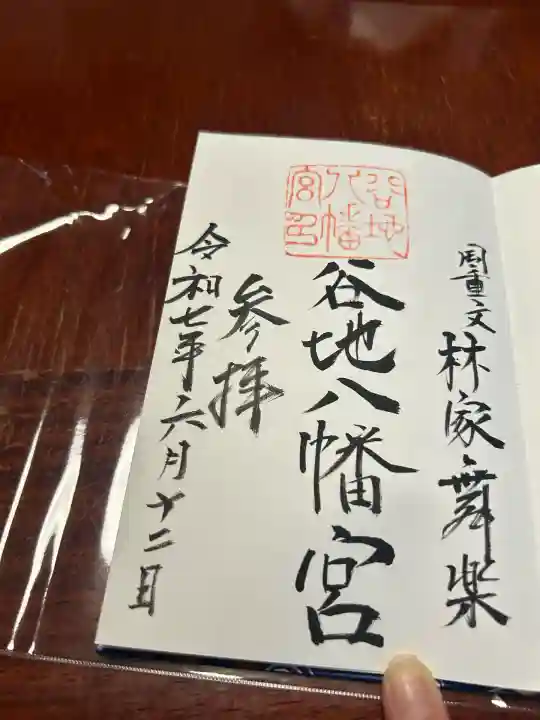 国重文 林家舞楽
谷地八幡宮
谷地
八幡
宮印
参拝
令和七年六月十二日